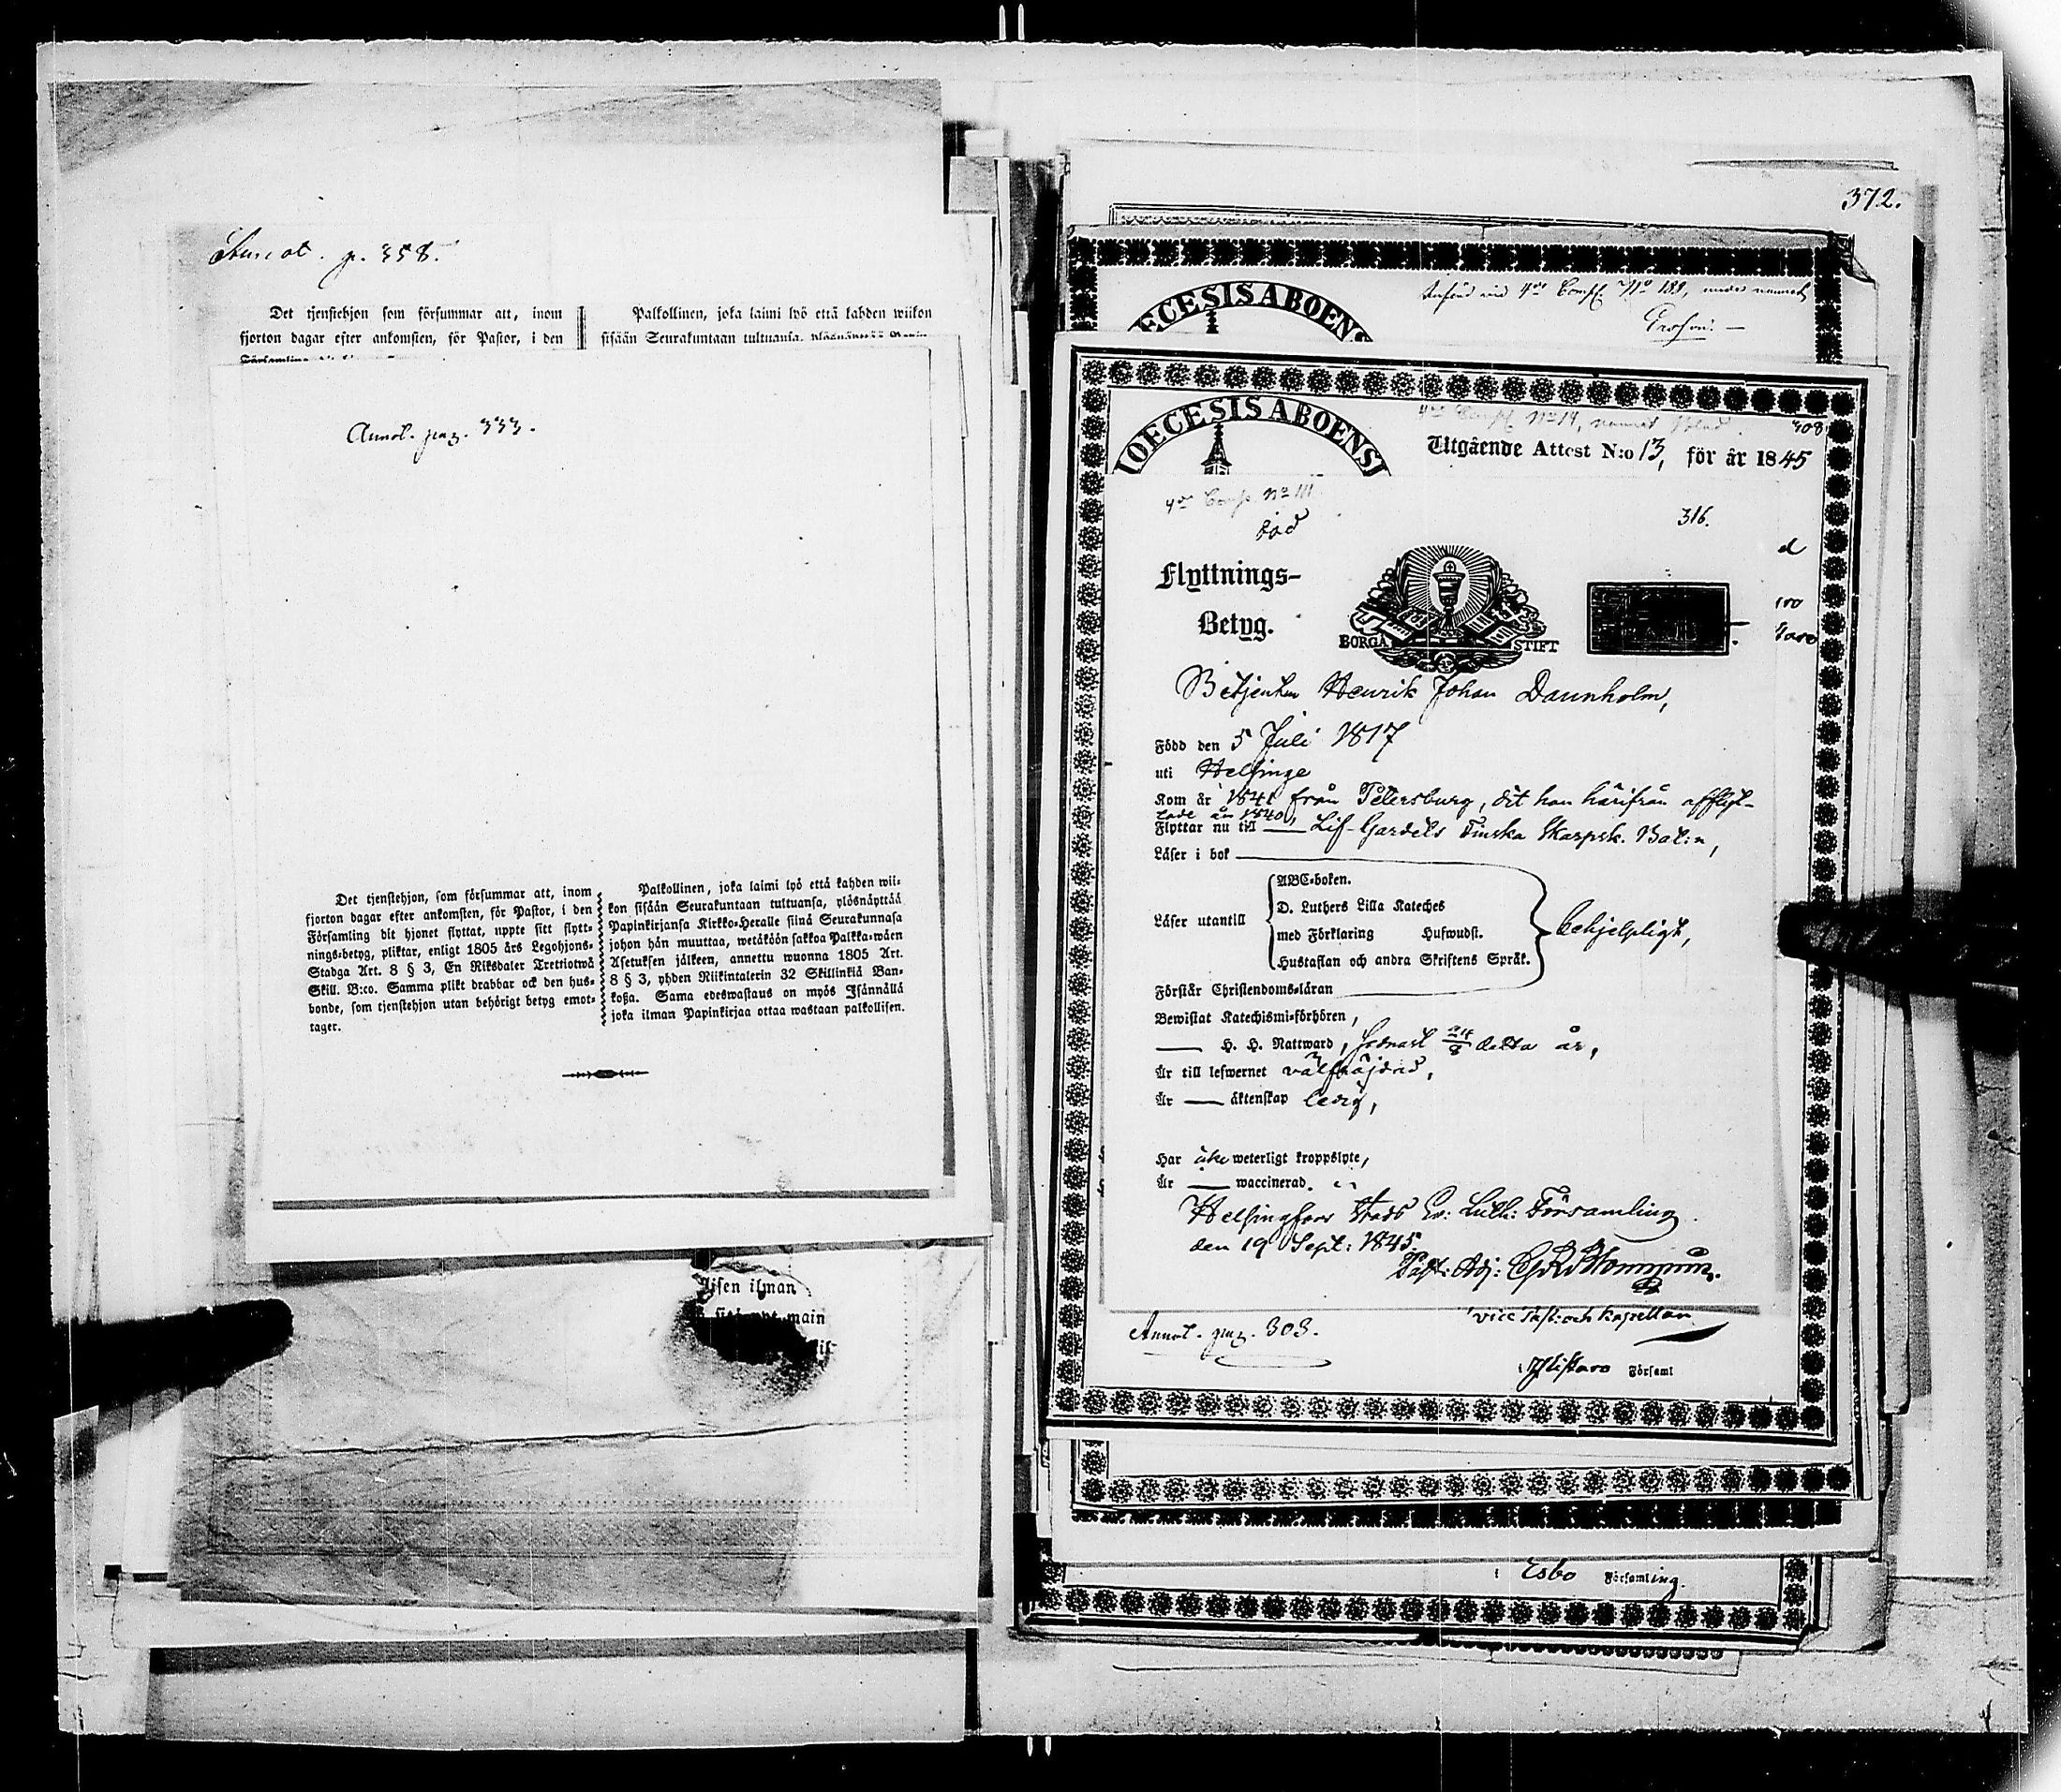 Annot. p. 358.
Det tjenstehjon som försummar att, inom
fjorton dagar efter ankomsten, för Pastor, i den
Palkollinen, joka laimi lyö että kahden wiikon
sisään Seurakuntaan tultuansa,
Annot. pag. 333.
Det tjenstehjon, som försummar att, inom
fjorton dagar efter ankomsten, för Pastor, i den
Församling dit hjonet flyttat, uppte sitt flytt-
nings-betyg, pliktar, enligt 1805 års Legohjons-
Stadga Art. 8 § 3, En Riksdaler Trettiotwå
Skill. B:co. Samma plikt drabbar ock den hus-
bonde, som tjenstehjon utan behörigt betyg emot-
tager.
Palkollinen, joka laimi lyö että kahden wii-
kon sisään Seurakuntaan tultuansa, ylösnäyttää
Papinkirjansa Kirkko-Heralle siinä Seurakunnasa
johon hän muuttaa, wetäköön sakkoa Palkka-wäen
Asetuksen jälkeen, annettu wuonna 1805 Art.
8 § 3, yhden Riikintalerin 32 Skillinkiä Ban-
koßa. Sama edeswastaus on myös Isännällä
joka ilman Papinkirjaa ottaa wastaan palkollisen.
ilman
main
372.
4de Comp. No 188, under namnet
OECESIS ABOENS
IOECESIS ABOENSI
308
Utgående Attest N:o 13, för år 1845
4de Comp. No 111
316.
Flyttnings-
Betyg.
BORGÅ STIFT
Betjenten Henrik Johan Daunholm,
Född den 5 Juli 1817
uti Helsinge
Kom år 1841 från Petersburg, dit han härifrån afflyt-
tade år 1840,
Flyttar nu till — Lif-Gardets Finska Skarpsk. Bat:n,
Läser i bok
ABC-boken.
Läser utantill
D. Luthers Lilla Kateches
med Förklaring Hufwudst.
Hustaflan och andra Skriftens Språk.
behjelpligt,
Förstår Christendoms-läran
Bewistat Katechismi-förhören,
— H. H. Nattward, senast 24/8 detta år,
Är till lefwernet välfräjdad,
Är — äktenskap ledig,
Har icke weterligt kroppslyte,
Är — waccinerad.
Helsingfors Stads Ev: Luth: Församling.
den 19 Sept: 1845.
Past: Adj:
Annot. pag. 303.
vice Past: och Kapellan
i Ylistaro Församl
i Esbo Församling.